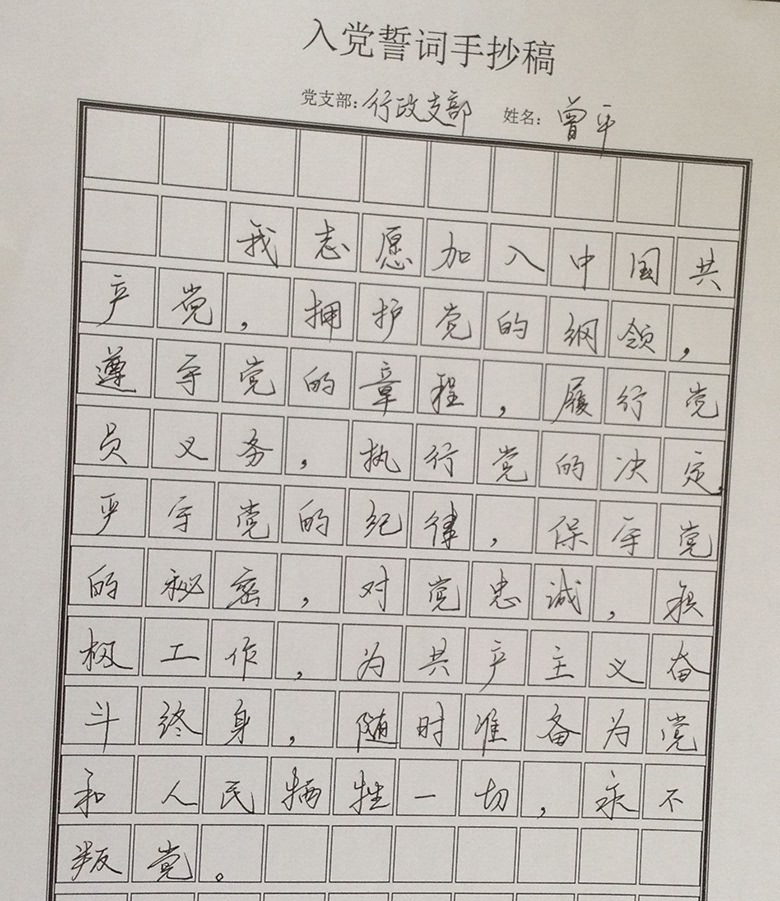 入党誓词手抄稿
党支部：行政支部 姓名：曾平
我志愿加入中国共
产党，拥护党的纲领，
遵守党的章程，履行党
员义务，执行党的决定，
严守党的纪律，保守党
的秘密，对党忠诚，积
极工作，为共产主义奋
斗终身，随时准备为党
和人民牺牲一切，永不
叛党。